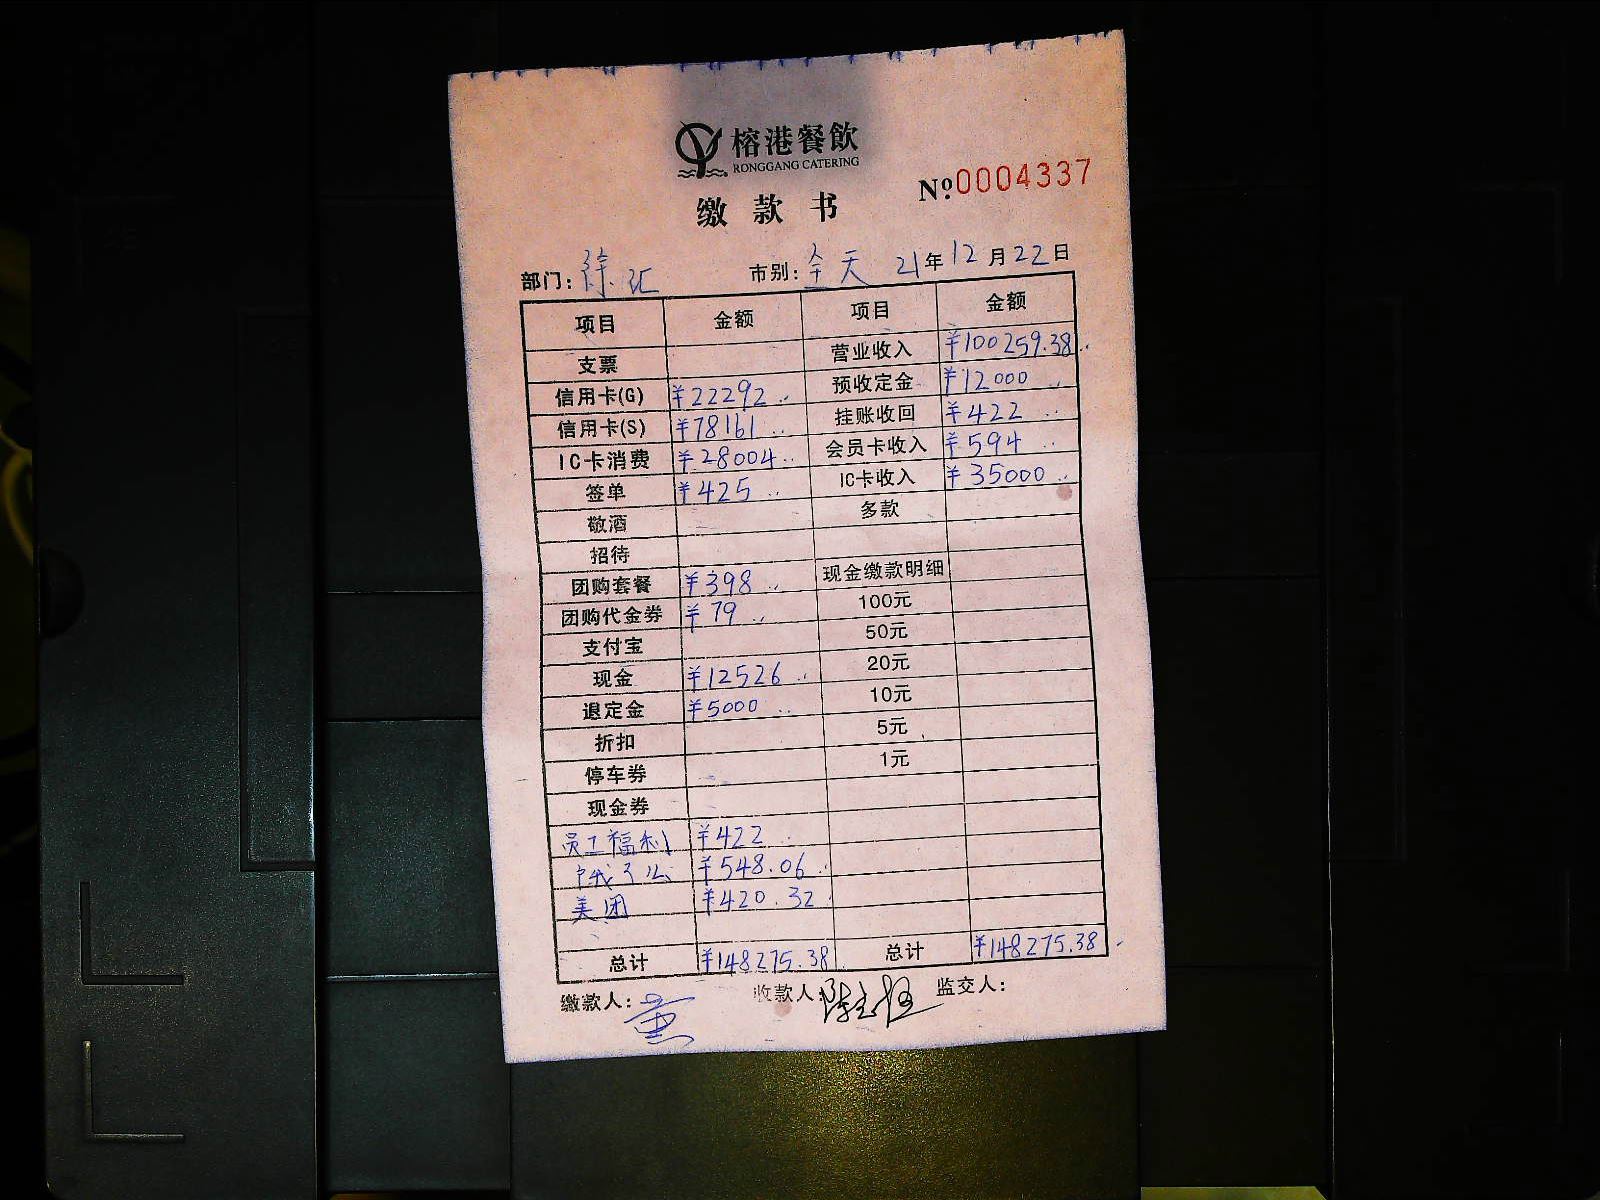 榕港餐飲
RONGGANG CATERING
№0004337
缴款书
部门: 徐汇 市别: 全天 21年12月22日
项目 金额 项目 金额
支票 营业收入 ¥100259.38
信用卡(G) ¥22292 预收定金 ¥12000
信用卡(S) ¥78161 挂账收回 ¥422
IC卡消费 ¥28004 会员卡收入 ¥594
签单 ¥425 IC卡收入 ¥35000
敬酒 多款
招待
团购套餐 ¥398 现金缴款明细
团购代金券 ¥79 100元
支付宝 50元
现金 ¥12526 20元
退定金 ¥5000 10元
折扣 5元
停车券 1元
现金券
员工福利 ¥422
¥548.06
美团 ¥420.32
总计 ¥148275.38 总计 ¥148275.38
缴款人: 收款人 监交人: